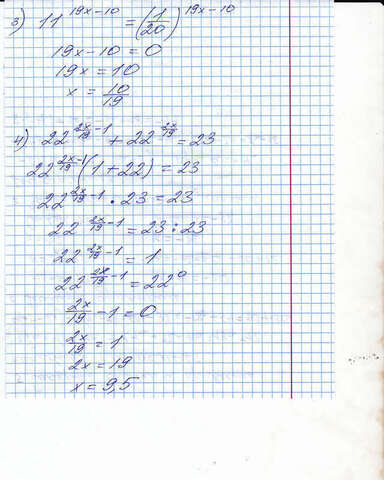 3) 11^(19x-10) = (1/20)^(19x-10)
19x-10 = 0
19x = 10
x = 10/19
4) 22^(2x/19 - 1) + 22^(2x/19) = 23
22^(2x/19 - 1) (1 + 22) = 23
22^(2x/19 - 1) · 23 = 23
22^(2x/19 - 1) = 23 : 23
22^(2x/19 - 1) = 1
22^(2x/19 - 1) = 22^0
2x/19 - 1 = 0
2x/19 = 1
2x = 19
x = 9,5